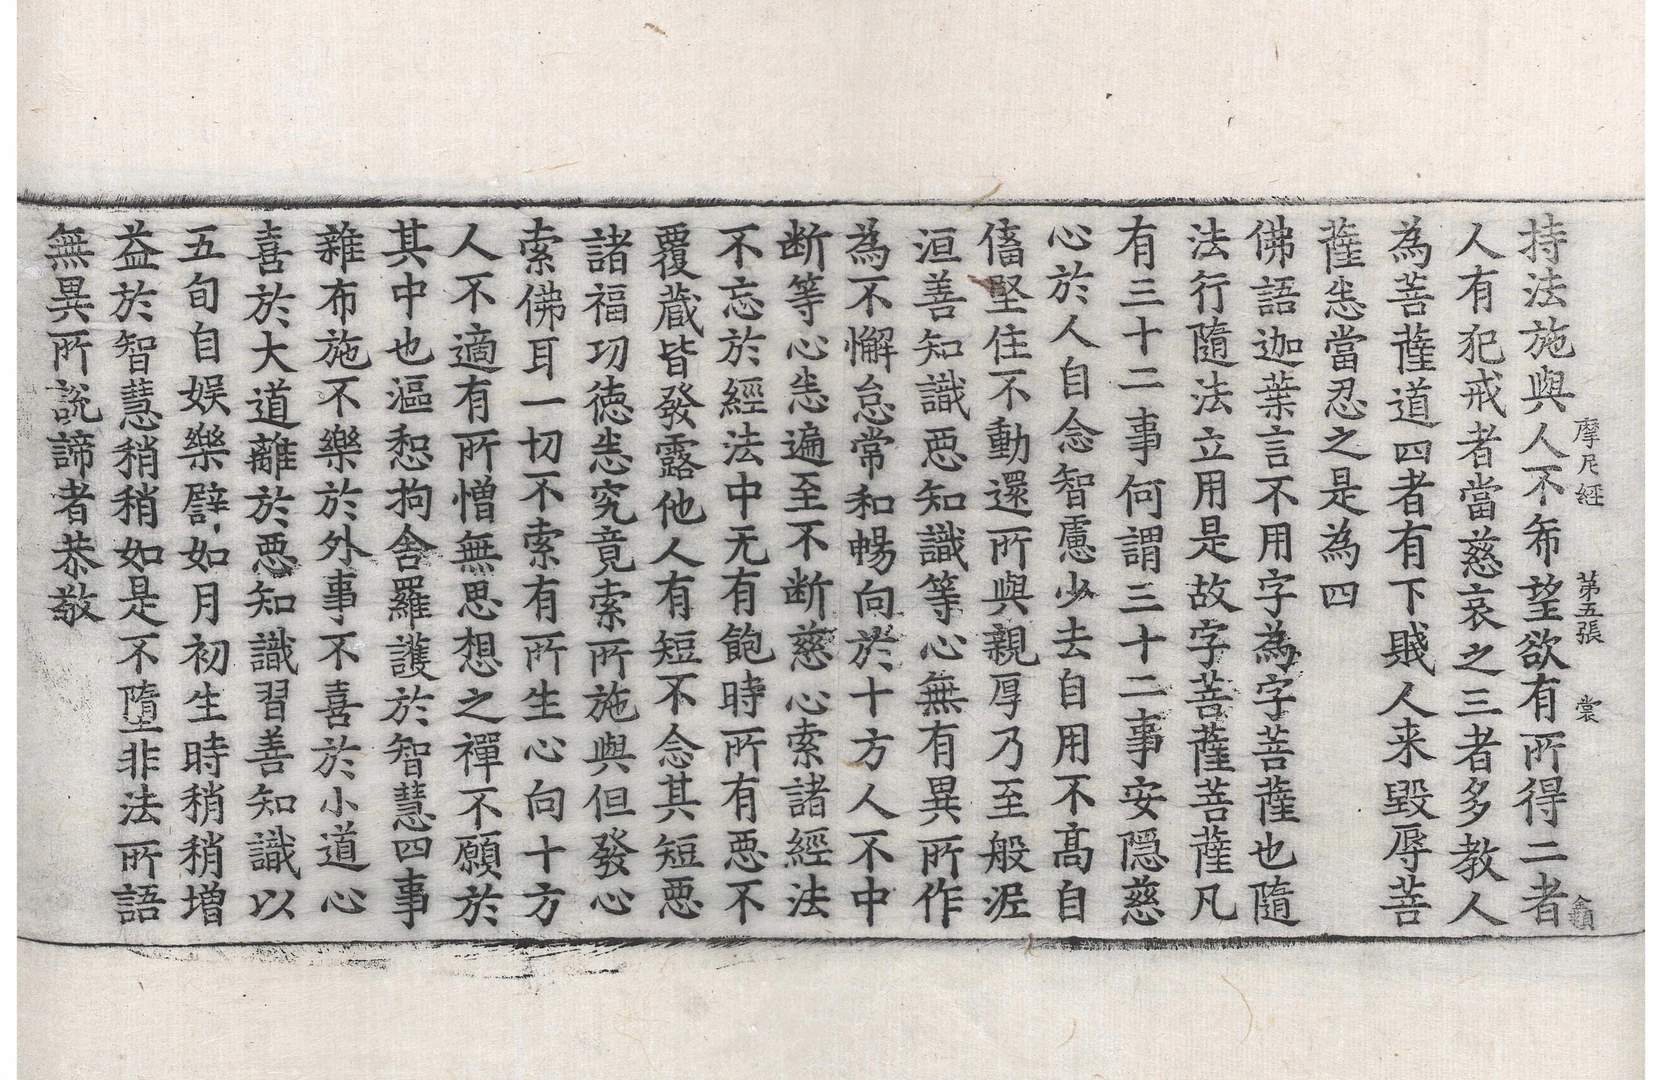 摩尼經　第五張　裳
持法施與人不希望欲有所得二者
人有犯戒者當慈哀之三者多教人
為菩薩道四者有下賤人来毀辱菩
薩恚當忍之是為四
佛語迦葉言不用字為字菩薩也隨
法行隨法立用是故字菩薩菩薩凡
有三十二事何謂三十二事安隱慈
心於人自念智慮少去自用不髙自
僃堅住不動還所與親厚乃至般泥
洹善知識惡知識等心無有異所作
為不懈怠常和暢向於十方人不中
断等心恚遍至不断慈心索諸經法
不忘於經法中无有飽時所有惡不
覆蔵皆發露他人有短不念其短惡
諸福㓛徳恚究竟索所施與但發心
索佛耳一切不索有所生心向十方
人不適有所憎無思想之禪不願於
其中也漚惒拘舍羅護於智慧四事
雜布施不樂於外事不喜於小道心
喜於大道離於惡知識習善知識以
五旬自娱樂譬如月初生時稍稍增
益於智慧稍稍如是不墮非法所語
無異所說諦者恭敬